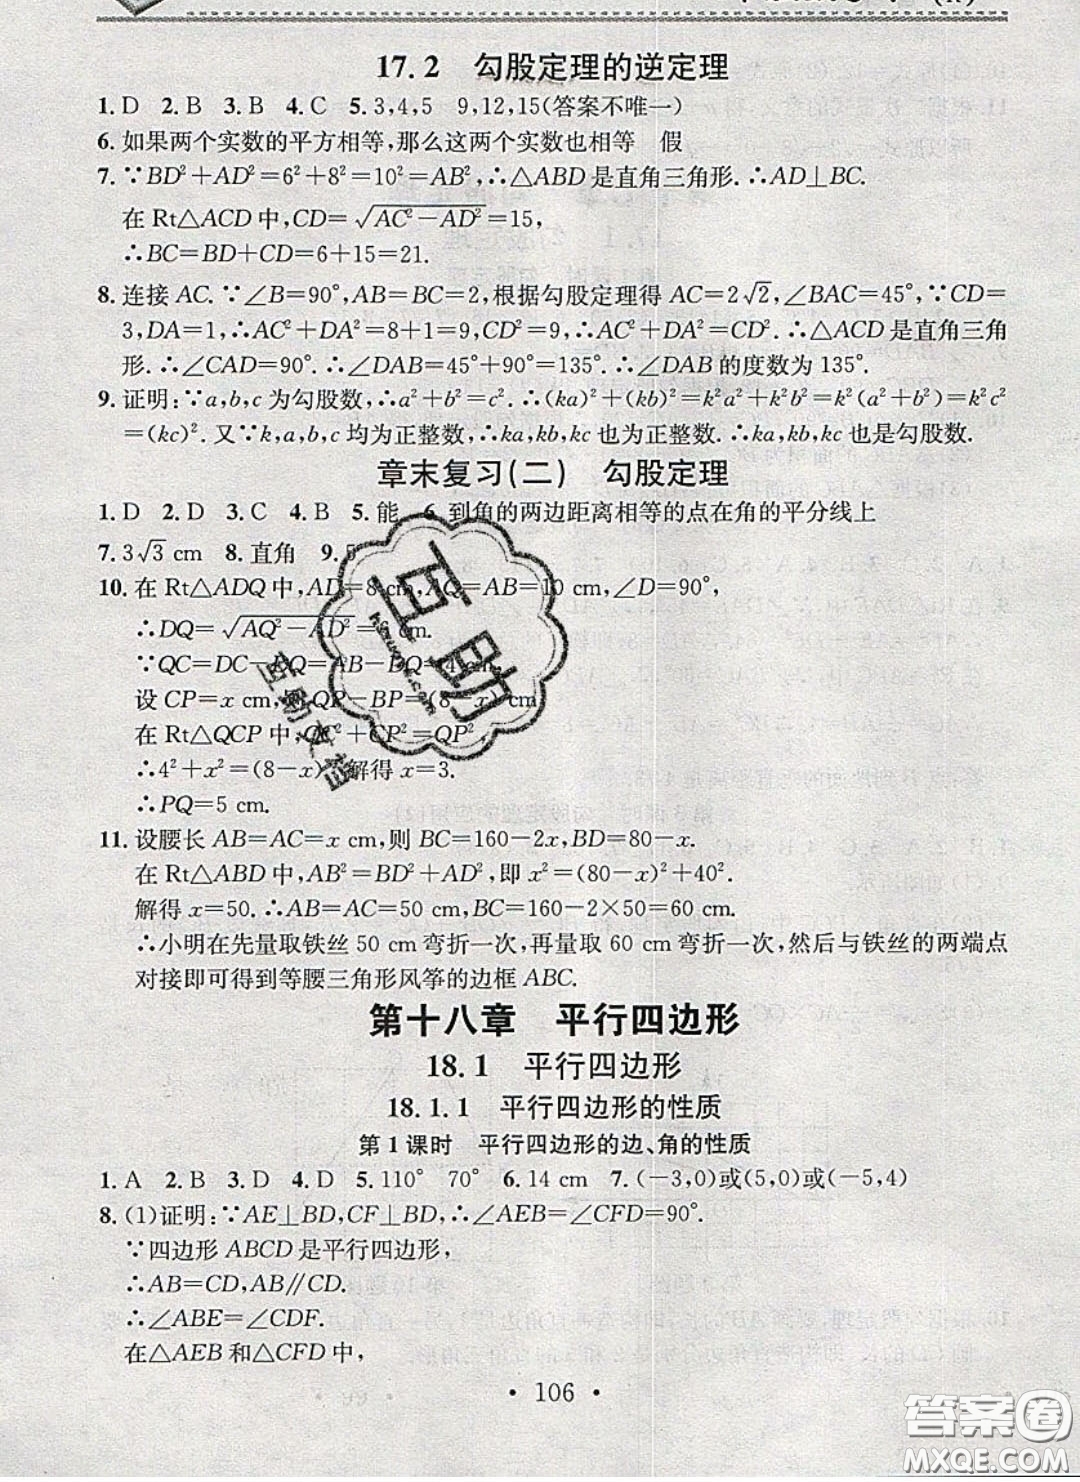 17.2 勾股定理的逆定理
1. D 2. B 3. B 4. C 5. 3,4,5 9,12,15(答案不唯一)
6. 如果两个实数的平方相等,那么这两个实数也相等 假
7. ∵BD²+AD²=6²+8²=10²=AB²,∴△ABD是直角三角形.∴AD⊥BC.
在Rt△ACD中,CD=√(AC²-AD²)=15,
∴BC=BD+CD=6+15=21.
8. 连接AC.∵∠B=90°,AB=BC=2,根据勾股定理得AC=2√2,∠BAC=45°,∵CD=
3,DA=1,∴AC²+DA²=8+1=9,CD²=9,∴AC²+DA²=CD².∴△ACD是直角三角
形.∴∠CAD=90°.∴∠DAB=45°+90°=135°.∴∠DAB的度数为135°.
9. 证明:∵a,b,c为勾股数,∴a²+b²=c².∴(ka)²+(kb)²=k²a²+k²b²=k²(a²+b²)=k²c²
=(kc)².又∵k,a,b,c均为正整数,∴ka,kb,kc也为正整数.∴ka,kb,kc也是勾股数.
章末复习(二) 勾股定理
1. D 2. D 3. C 4. B 5. 能 6. 到角的两边距离相等的点在角的平分线上
7. 3√3 cm 8. 直角 9. 5
10. 在Rt△ADQ中,AD=8 cm,AQ=AB=10 cm,∠D=90°,
∴DQ=√(AQ²-AD²)=6 cm.
∵QC=DC-DQ=AB-DQ=4 cm.
设CP=x cm,则QP=BP=(8-x) cm
在Rt△QCP中,QC²+CP²=QP²,
∴4²+x²=(8-x)²,解得x=3.
∴PQ=5 cm.
11. 设腰长AB=AC=x cm,则BC=160-2x,BD=80-x.
在Rt△ABD中,AB²=BD²+AD²,即x²=(80-x)²+40².
解得x=50.∴AB=AC=50,BC=160-2×50=60.
∴小明在先量取铁丝50 cm弯折一次,再量取60 cm弯折一次,然后与铁丝的两端点
对接即可得到等腰三角形风筝的边框ABC.
第十八章 平行四边形
18.1 平行四边形
18.1.1 平行四边形的性质
第1课时 平行四边形的边、角的性质
1. A 2. B 3. D 4. D 5. 110° 70° 6. 14 cm 7. (-3,0)或(5,0)或(-5,4)
8. (1)证明:∵AE⊥BD,CF⊥BD,∴∠AEB=∠CFD=90°.
∵四边形ABCD是平行四边形,
∴AB=CD,AB∥CD.
∴∠ABE=∠CDF.
在△AEB和△CFD中,
• 106 •
互助
互助文档
答案圈
MXQE.COM